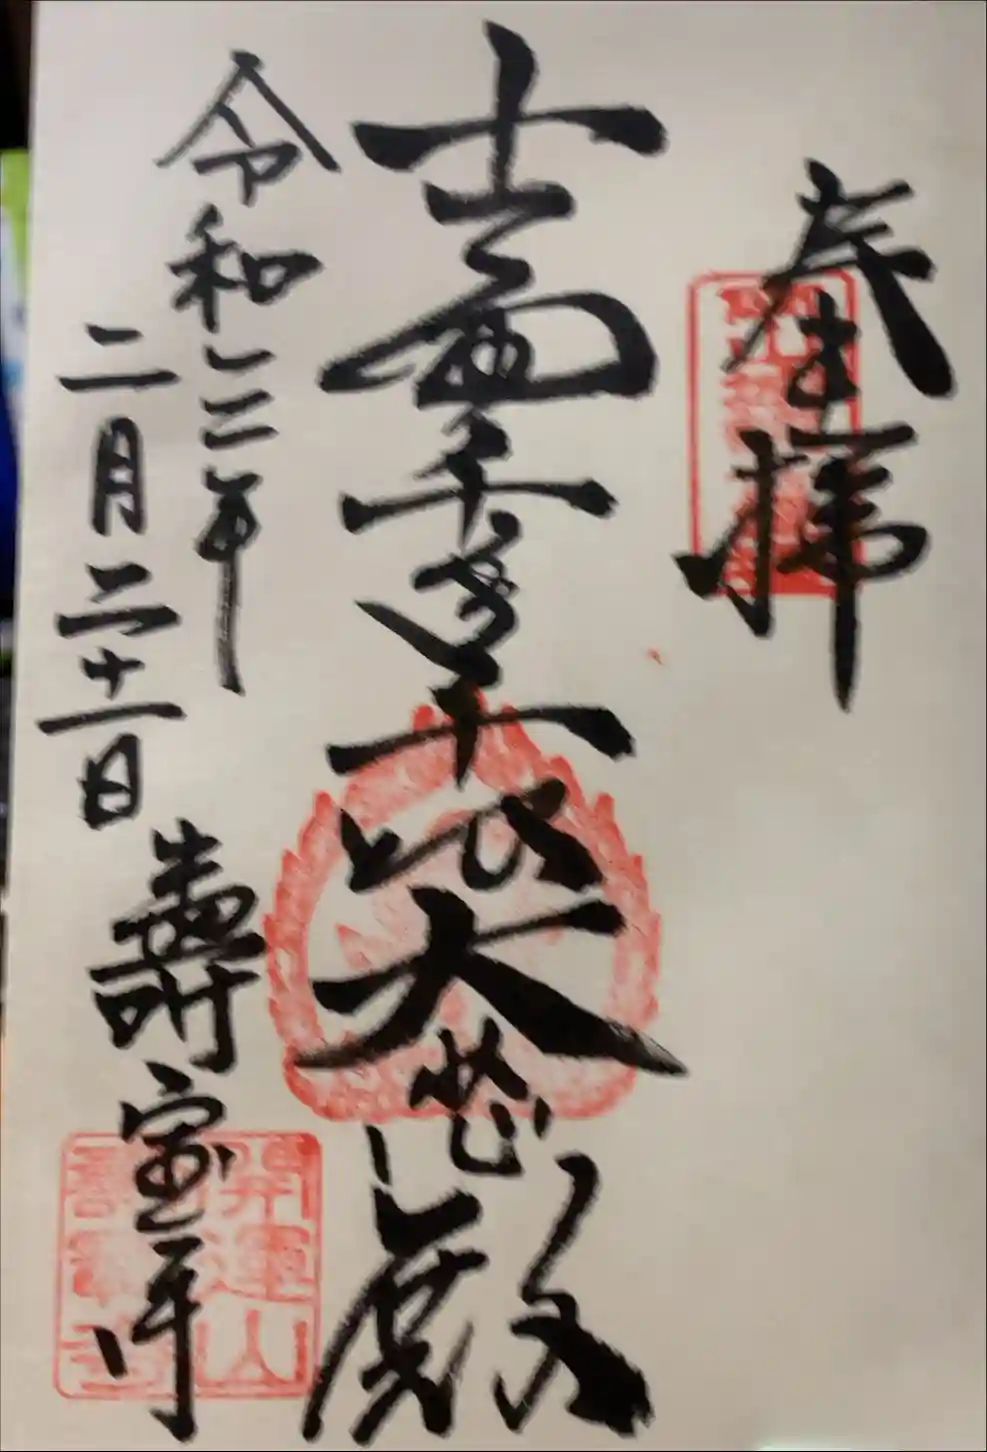 奉拝
十一面千手千眼大悲殿
令和三年
二月二十一日
壽宝寺
開運山
壽寶寺